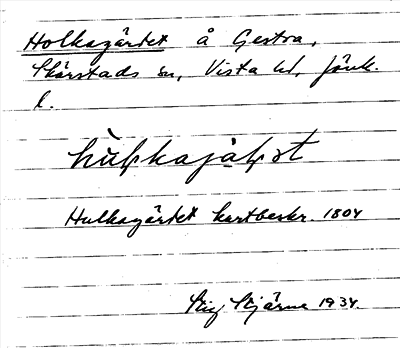 Holkagärdet å Gestra,
Skärstads sn, Vista hd, Jönk.
l.
Hulkagärdet kartbeskr. 1804
Stig Stjärne 1934.